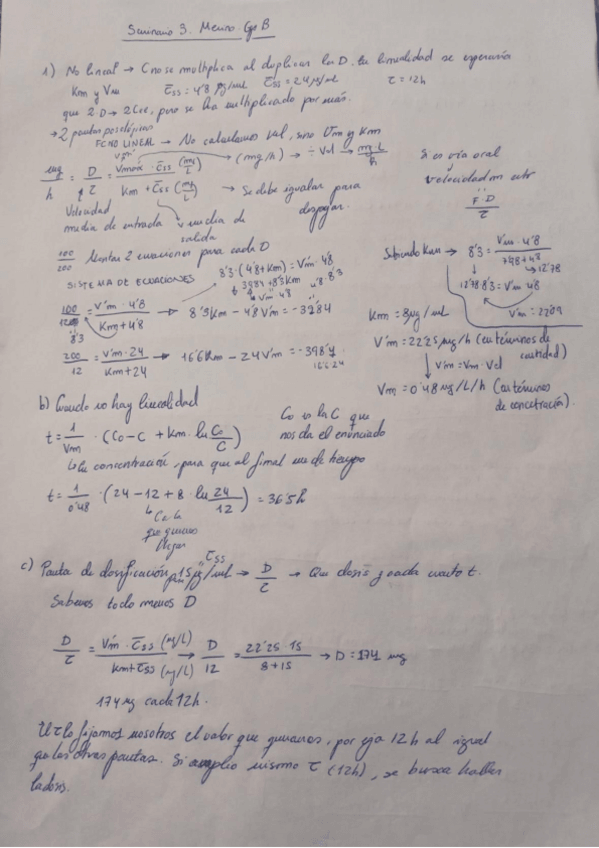 Seminario 3. Menro Gp B
1) No lineal → C no se multiplica al duplicar la D. la linealidad se esperaría
Km y Vm C̄ss = 4'8 µg/mL C̄ss = 24 µg/mL τ = 12h
que 2D → 2Css, pero se ha multiplicado por más.
→ 2 pautas posológicas
PCNO LINEAL → No calculamos Vd, sino Vm y Km
mg/h = D/τ = V'max · C̄ss (mg/L) / Km + C̄ss (mg/L) → (mg/h) → ÷ Vd → mg·L/h
→ Se debe igualar para despejar.
Velocidad media de entrada
v media de salida
Si es vía oral
velocidad m entr
F·D/τ
100/200 Montar 2 ecuaciones para cada D
SISTEMA DE ECUACIONES
8'3 · (4'8 + Km) = V'm · 48
100/12 = V'm · 4'8 / Km + 4'8 → 8'3Km - 48V'm = -39'84
8'3
200/12 = V'm · 24 / Km + 24 → 16'6Km - 24V'm = -398'4
16'6·24
Sabiendo Km → 8'3 = V'm · 4'8 / 7'98 + 4'8
→ 12'78
12'78 · 8'3 = V'm · 4'8
V'm = 22'09
Km = 8 µg/mL
V'm = 22'25 mg/h (en términos de cantidad)
V'm = Vm · Vd
Vm = 0'48 mg/L/h (en términos de concentración).
b) Cuando no hay linealidad
t = 1/Vm · (Co - C + Km · ln Co/C)
Co es la C que
nos da el enunciado
↳ En concentración, para que al final me de tiempo
t = 1/0'48 · (24 - 12 + 8 · ln 24/12) = 36'5h
↳ C a la
que queremos
llegar
c) Pauta de dosificación para 15 µg/mL → D/τ → Que dosis y cada cuanto t.
C̄ss
Sabemos todo menos D
D/τ = V'm · C̄ss (mg/L) / Km + C̄ss (mg/L) → D/12 = 22'25 · 15 / 8 + 15 → D = 174 mg
174 mg cada 12h.
El τ lo fijamos nosotros el valor que queramos, por ejm 12h al igual
que las otras pautas. Si amplio mismo τ (12h), se busca hallar